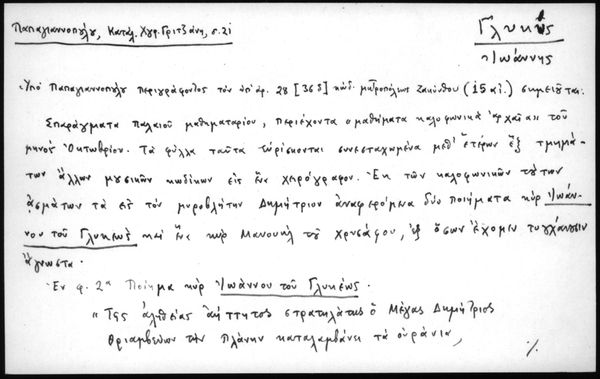 Παπαγιαννοπούλου, Καταλ. Χφφ. Γριτζάνη, σ. 21
Γλυκύς
Ἰωάννης
Ὑπό Παπαγιαννοπούλου περιγράφοντος τόν ὑπ' ἀρ. 28 [36δ] κώδ. μητροπόλεως Ζακύνθου (15 αἰ.) σημειοῦται:
Σπαράγματα παλαιοῦ μαθηματαρίου, περιέχοντα ὁ μαθήματα καλοφωνικά ἀρχαῖα» τοῦ
μηνός Ὀκτωβρίου. Τά φύλλα ταῦτα εὑρίσκονται συνεσταχωμένα μεθ' ἑτέρων ἕξ τμημά-
των ἄλλων μουσικῶν κωδίκων εἰς ἕν χειρόγραφον. Ἐκ τῶν καλοφωνικῶν τούτων
ᾀσμάτων τά εἰς τόν μυροβλήτην Δημήτριον ἀναφερόμενα δύο ποιήματα κύρ Ἰωάν-
νου τοῦ Γλυκέως καί ἕν κύρ Μανουήλ τοῦ Χρυσάφου, ἐξ ὅσων ἔχομεν τυγχάνουσιν
ἄγνωστα.
Ἐν φ. 2α Ποίημα κύρ Ἰωάννου τοῦ Γλυκέως.
«Τῆς ἀληθείας ἀήττητος στρατηλάτης ὁ Μέγας Δημήτριος
θριαμβεύων τήν πλάνην καταλαμβάνει τά οὐράνια,
./.